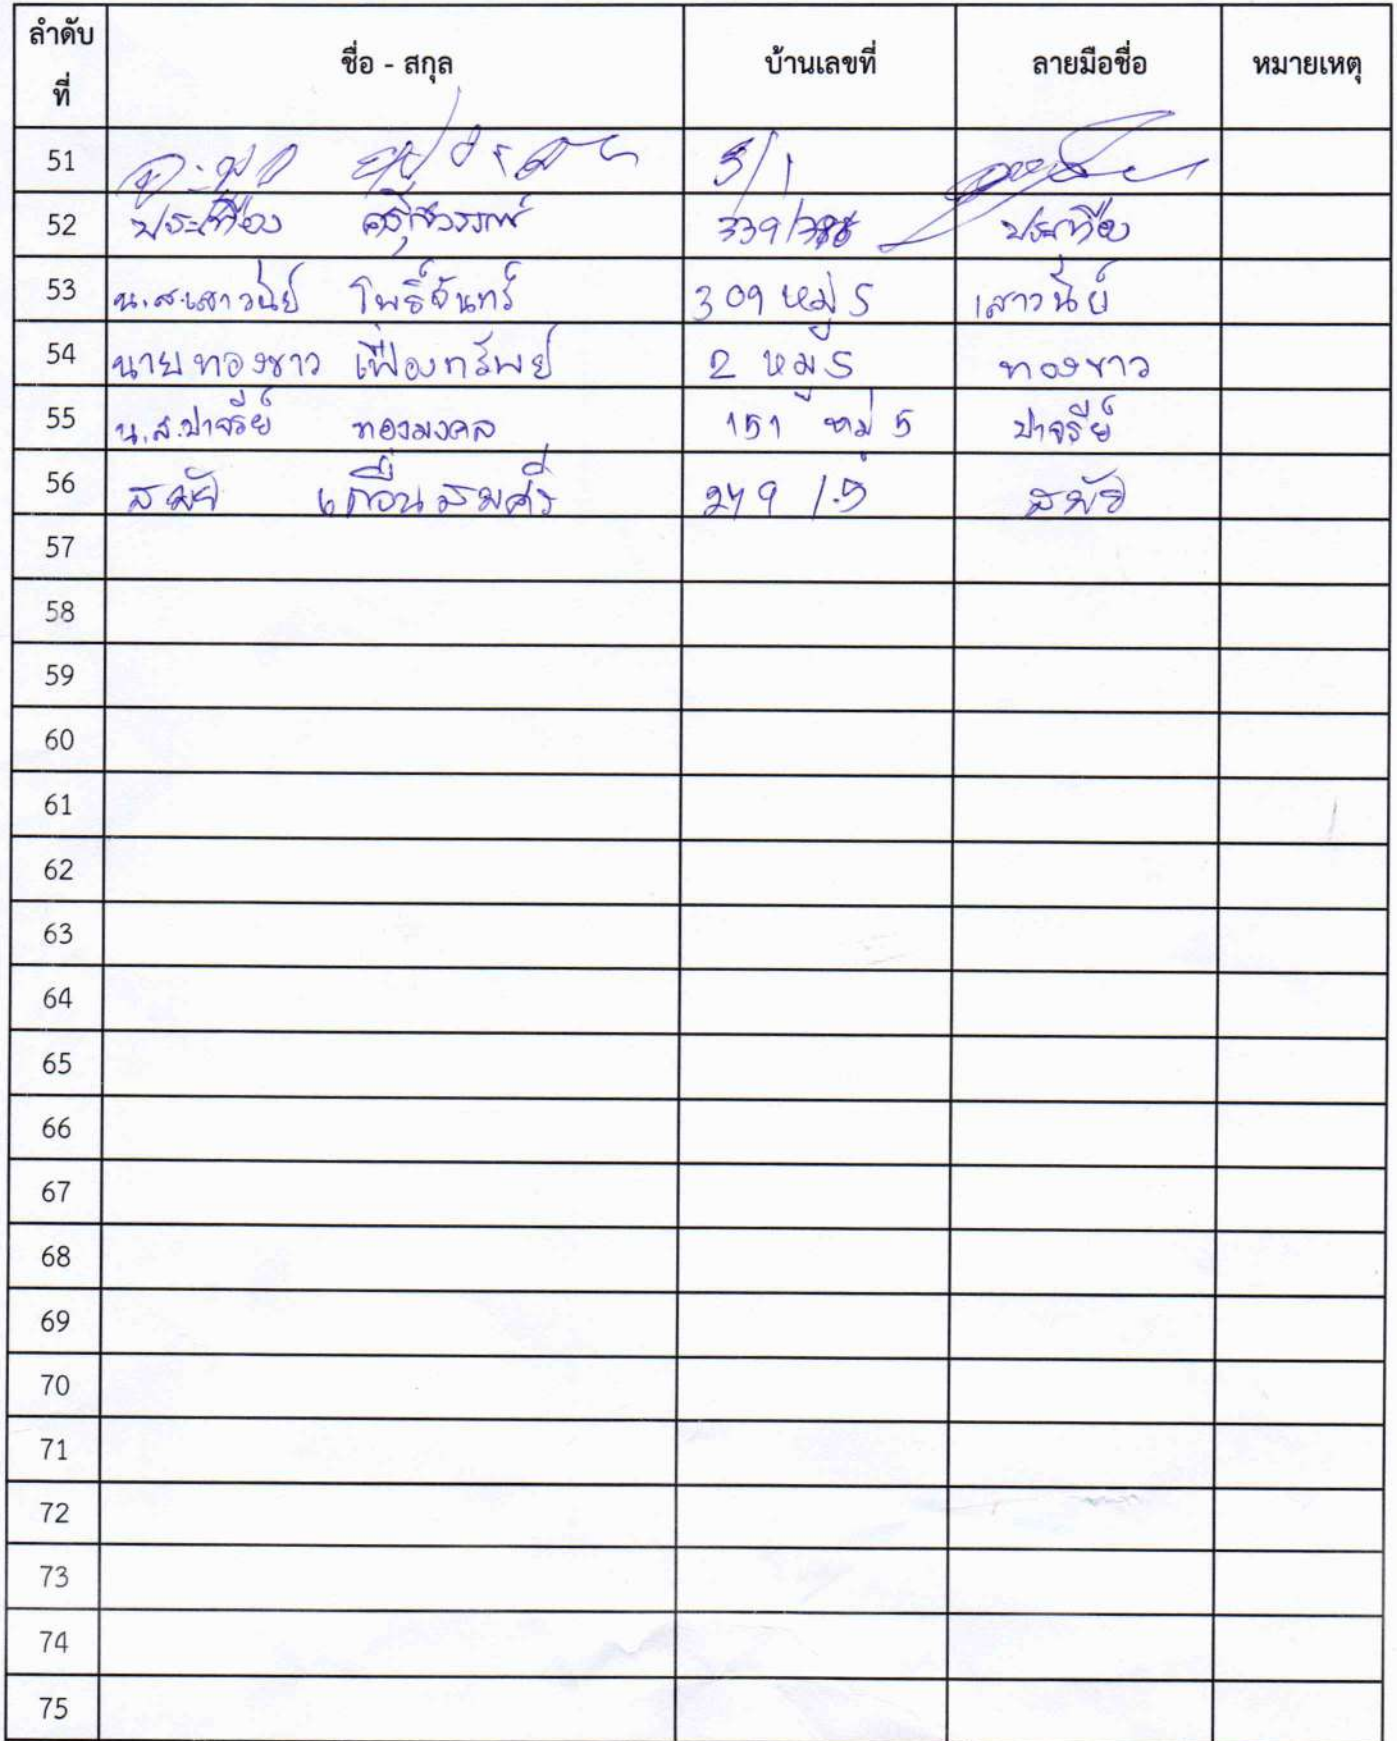 ลำดับที่ ชื่อ - สกุล บ้านเลขที่ ลายมือชื่อ หมายเหตุ
51 5/1
52 ประเทือง 339/ ประเทือง
53 น.ส.เสาวนีย์ โพธิ์จันทร์ 309 หมู่ 5 เสาวนีย์
54 นายทองขาว เฟื่องทรัพย์ 2 หมู่ 5 ทองขาว
55 น.ส.ปาจรีย์ ทองมงคล 151 หมู่ 5 ปาจรีย์
56 สมัย เถื่อนสมศรี 249 /.5 สมัย
57
58
59
60
61
62
63
64
65
66
67
68
69
70
71
72
73
74
75